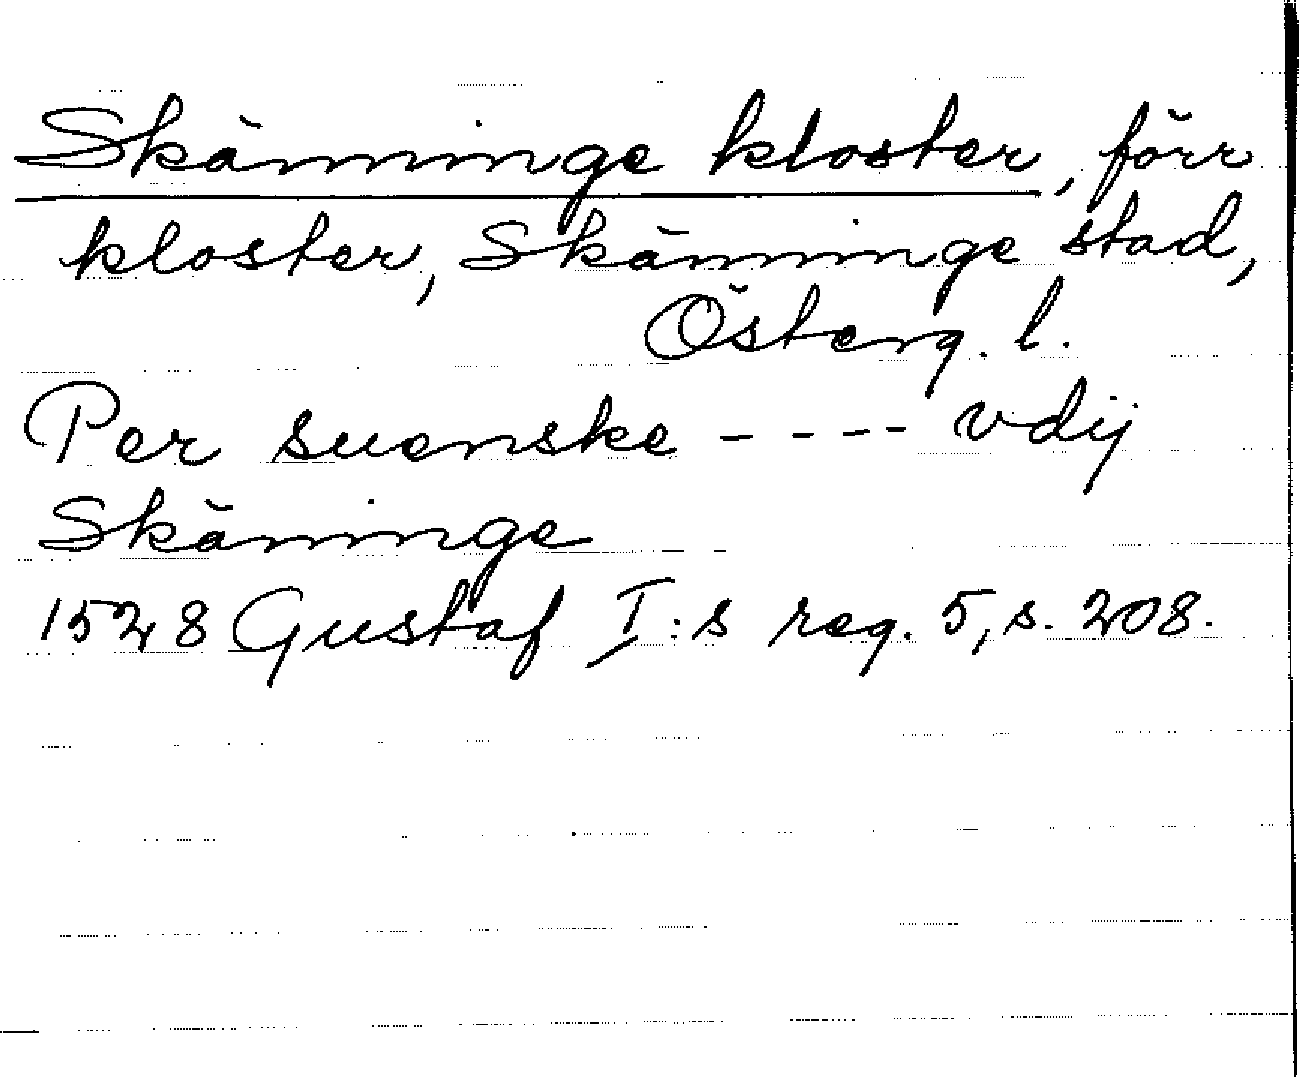 Skänninge kloster, förr
kloster, Skänninge stad,
Österg. l.
Per suenske - - - - vdij
Skäninge
1528 Gustaf I:s reg. 5, s. 208.